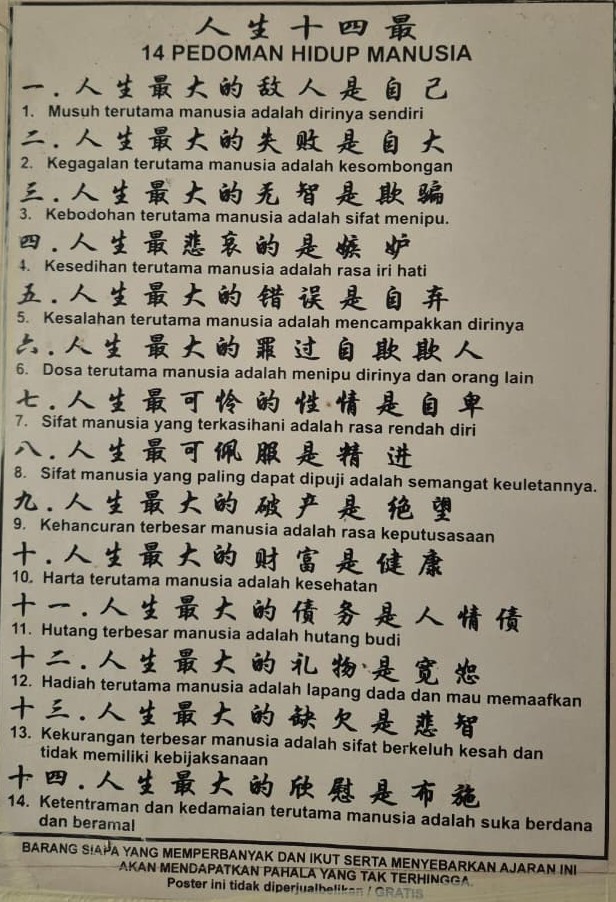 人生十四最
14 PEDOMAN HIDUP MANUSIA
一．人生最大的敌人是自己
1. Musuh terutama manusia adalah dirinya sendiri
二．人生最大的失败是自大
2. Kegagalan terutama manusia adalah kesombongan
三．人生最大的无智是欺骗
3. Kebodohan terutama manusia adalah sifat menipu.
四．人生最悲哀的是嫉妒
4. Kesedihan terutama manusia adalah rasa iri hati
五．人生最大的错误是自弃
5. Kesalahan terutama manusia adalah mencampakkan dirinya
六．人生最大的罪过自欺欺人
6. Dosa terutama manusia adalah menipu dirinya dan orang lain
七．人生最可怜的性情是自卑
7. Sifat manusia yang terkasihani adalah rasa rendah diri
八．人生最可佩服是精进
8. Sifat manusia yang paling dapat dipuji adalah semangat keuletannya.
九．人生最大的破产是绝望
9. Kehancuran terbesar manusia adalah rasa keputusasaan
十．人生最大的财富是健康
10. Harta terutama manusia adalah kesehatan
十一．人生最大的债务是人情债
11. Hutang terbesar manusia adalah hutang budi
十二．人生最大的礼物是宽恕
12. Hadiah terutama manusia adalah lapang dada dan mau memaafkan
十三．人生最大的缺欠是悲智
13. Kekurangan terbesar manusia adalah sifat berkeluh kesah dan
tidak memiliki kebijaksanaan
十四．人生最大的欣慰是布施
14. Ketentraman dan kedamaian terutama manusia adalah suka berdana
dan beramal
BARANG SIAPA YANG MEMPERBANYAK DAN IKUT SERTA MENYEBARKAN AJARAN INI
AKAN MENDAPATKAN PAHALA YANG TAK TERHINGGA.
Poster ini tidak diperjualbelikan / GRATIS